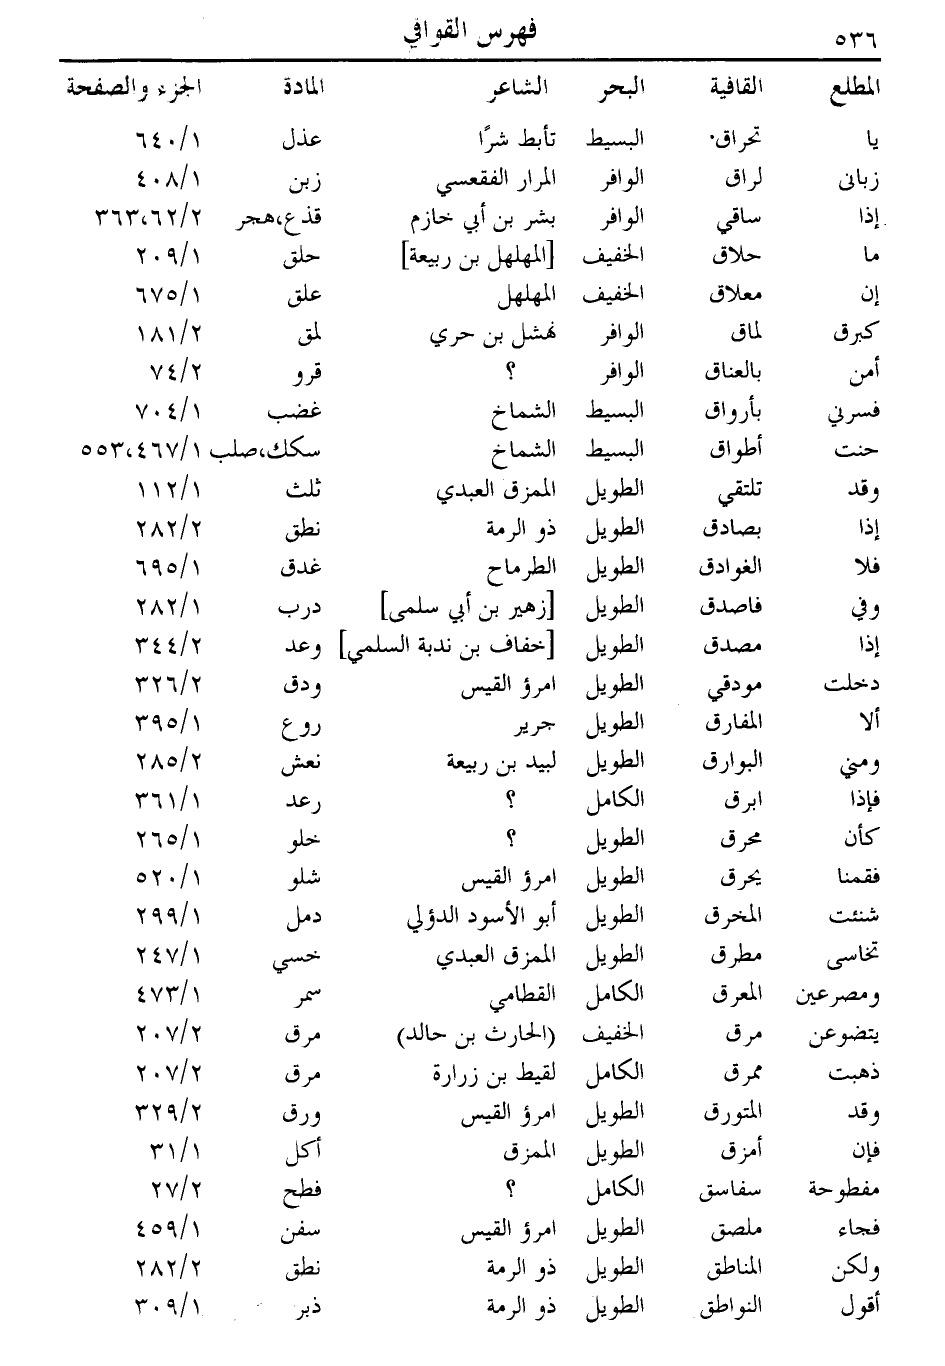 ٥٣٦ فهرس القوافي
المطلع القافية البحر الشاعر المادة الجزء والصفحة
يا تحراق البسيط تأبط شرًا عذل ٦٤٠/١
زبانى لراق الوافر المرار الفقعسي زبن ٤٠٨/١
إذا ساقي الوافر بشر بن أبي خازم قذع،هجر ٣٦٣،٦٢/٢
ما حلاق الخفيف [المهلهل بن ربيعة] حلق ٢٠٩/١
إن معلاق الخفيف المهلهل علق ٦٧٥/١
كبرق لماق الوافر نهشل بن حري لمق ١٨١/٢
أمن بالعناق الوافر ؟ قرو ٧٤/٢
فسرني بأرواق البسيط الشماخ غضب ٧٠٤/١
حنت أطواق البسيط الشماخ سكك،صلب ٥٥٣،٤٦٧/١
وقد تلتقي الطويل الممزق العبدي ثلث ١١٢/١
إذا بصادق الطويل ذو الرمة نطق ٢٨٢/٢
فلا الغوادق الطويل الطرماح غدق ٦٩٥/١
وفي فاصدق الطويل [زهير بن أبي سلمى] درب ٢٨٢/١
إذا مصدق الطويل [خفاف بن ندبة السلمي] وعد ٣٤٤/٢
دخلت مودقي الطويل امرؤ القيس ودق ٣٢٦/٢
ألا المفارق الطويل جرير روع ٣٩٥/١
ومني البوارق الطويل لبيد بن ربيعة نعش ٢٨٥/٢
فإذا ابرق الكامل ؟ رعد ٣٦١/١
كأن محرق الطويل ؟ خلو ٢٦٥/١
فقمنا يحرق الطويل امرؤ القيس شلو ٥٢٠/١
شنئت المخرق الطويل أبو الأسود الدؤلي دمل ٢٩٩/١
تخاسى مطرق الطويل الممزق العبدي خسي ٢٤٧/١
ومصرعين المعرق الكامل القطامي سمر ٤٧٣/١
يتضوعن مرق الخفيف (الحارث بن حالد) مرق ٢٠٧/٢
ذهبت ممرق الكامل لقيط بن زرارة مرق ٢٠٧/٢
وقد المتورق الطويل امرؤ القيس ورق ٣٢٩/٢
فإن أمزق الطويل الممزق أكل ٣١/١
مفطوحة سفاسق الكامل ؟ فطح ٢٧/٢
فجاء ملصق الطويل امرؤ القيس سفن ٤٥٩/١
ولكن المناطق الطويل ذو الرمة نطق ٢٨٢/٢
أقول النواطق الطويل ذو الرمة ذبر ٣٠٩/١